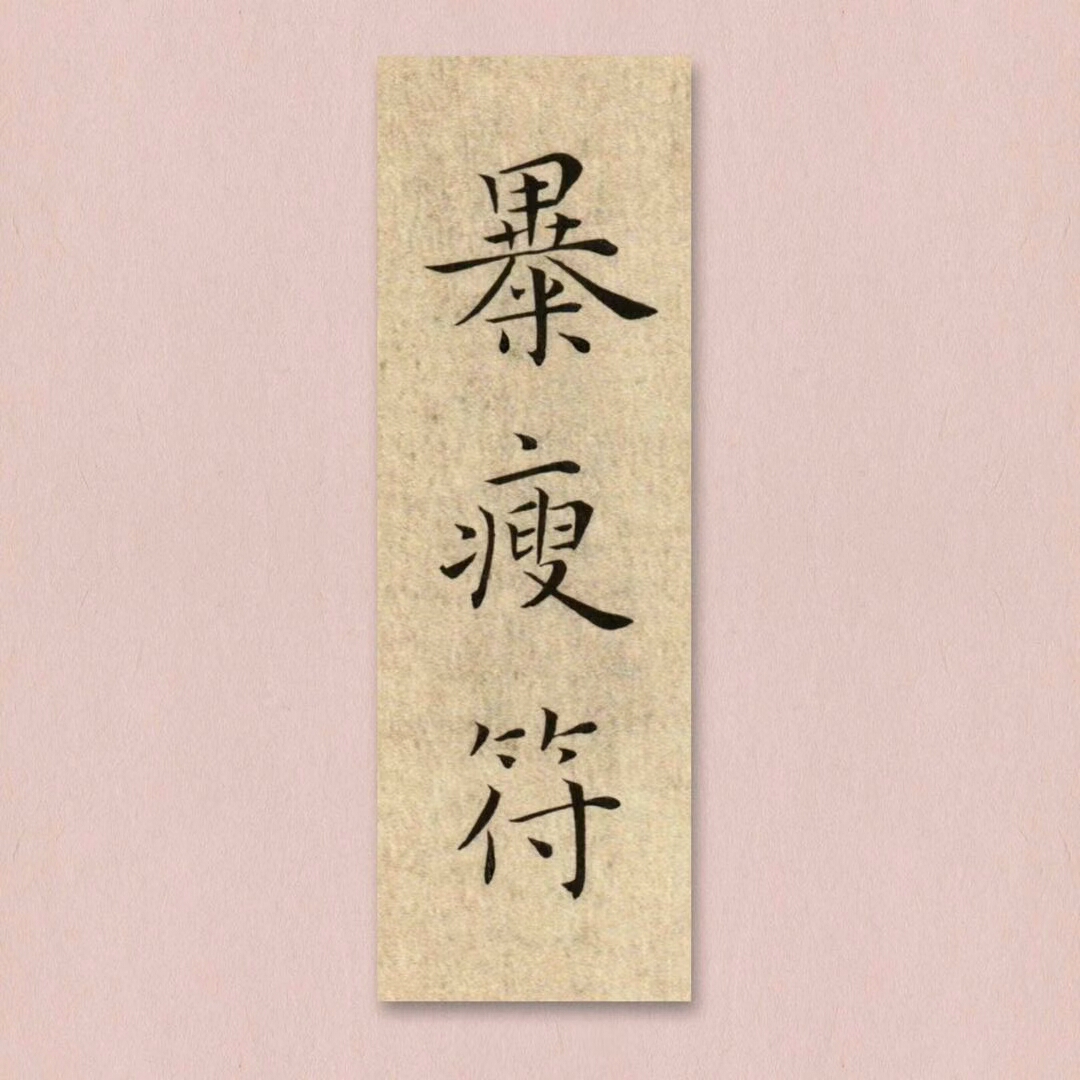 暴瘦符